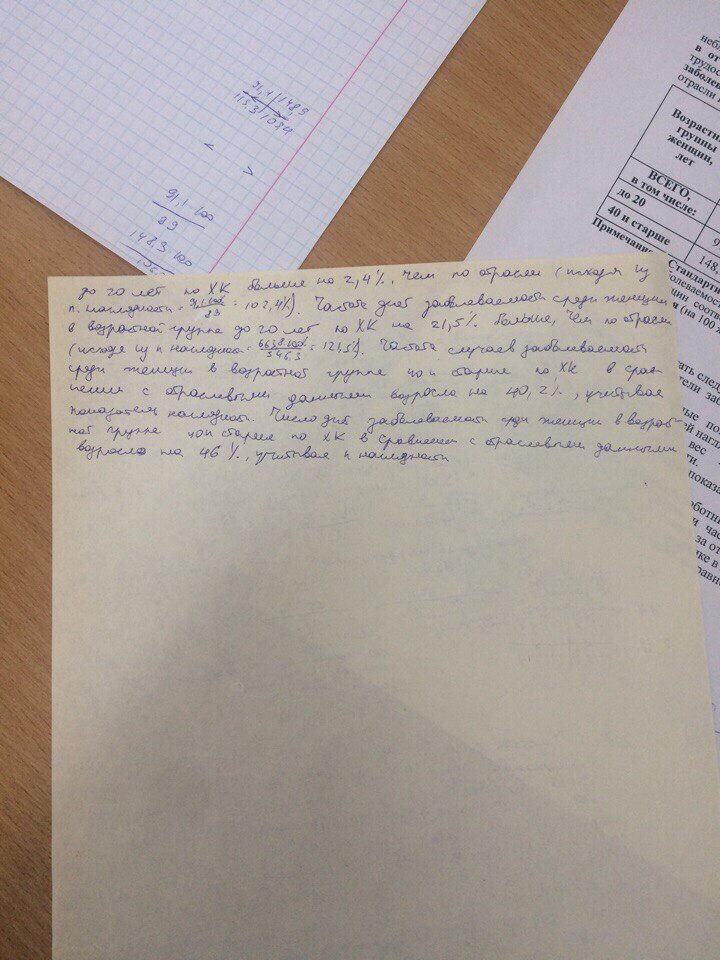 91,1 / 148,9
113,3 / 108,4
<
>
91,1·100
89
148,3·100
небл
в от
трудос
заболев
отрасли
Возрастн
группы
женщин,
лет
ВСЕГО,
в том числе:
до 20
9
40 и старше
148,
Примечание
Стандартн
болеваемос
щин соотв
и (на 100
до 20 лет по ХК больше на 2,4%, чем по отрасли (исходя из
п. наглядности = 91,1·100 / 89 = 102,4%). Частота дней заболеваемости среди женщин
в возрастной группе до 20 лет по ХК на 21,5% больше, чем по отрасли
(исходя из п наглядности = 663,8·100 / 546,3 = 121,5%). Частота случаев заболеваемости
среди женщин в возрастной группе 40 и старше по ХК в срав
нении с отраслевыми данными возросла на 40,2%, учитывая
показатель наглядности. Число дней заболеваемости среди женщин в возраст
ной группе 40 и старше по ХК в сравнении с отраслевыми данными
возросло на 46%, учитывая п наглядности
ать след
тели заб
ные по
ей нагл
вес
ти.
показа
аботни
ч час
за от
ике в
равно